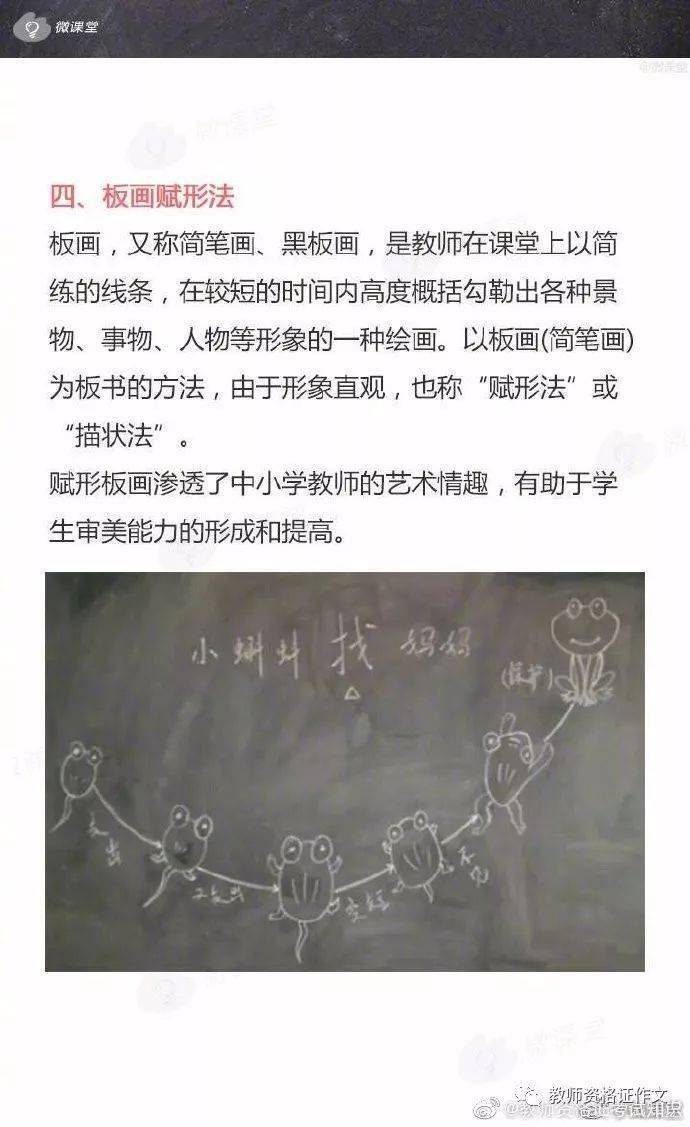 微课堂
@微课堂
微课堂
四、板画赋形法
板画，又称简笔画、黑板画，是教师在课堂上以简
练的线条，在较短的时间内高度概括勾勒出各种景
物、事物、人物等形象的一种绘画。以板画(简笔画)
为板书的方法，由于形象直观，也称“赋形法”或
“描状法”。
赋形板画渗透了中小学教师的艺术情趣，有助于学
生审美能力的形成和提高。
小蝌蚪找妈妈
(保护)
长出
又长出
变短
不见
微课堂
教师资格证作文
考试知识